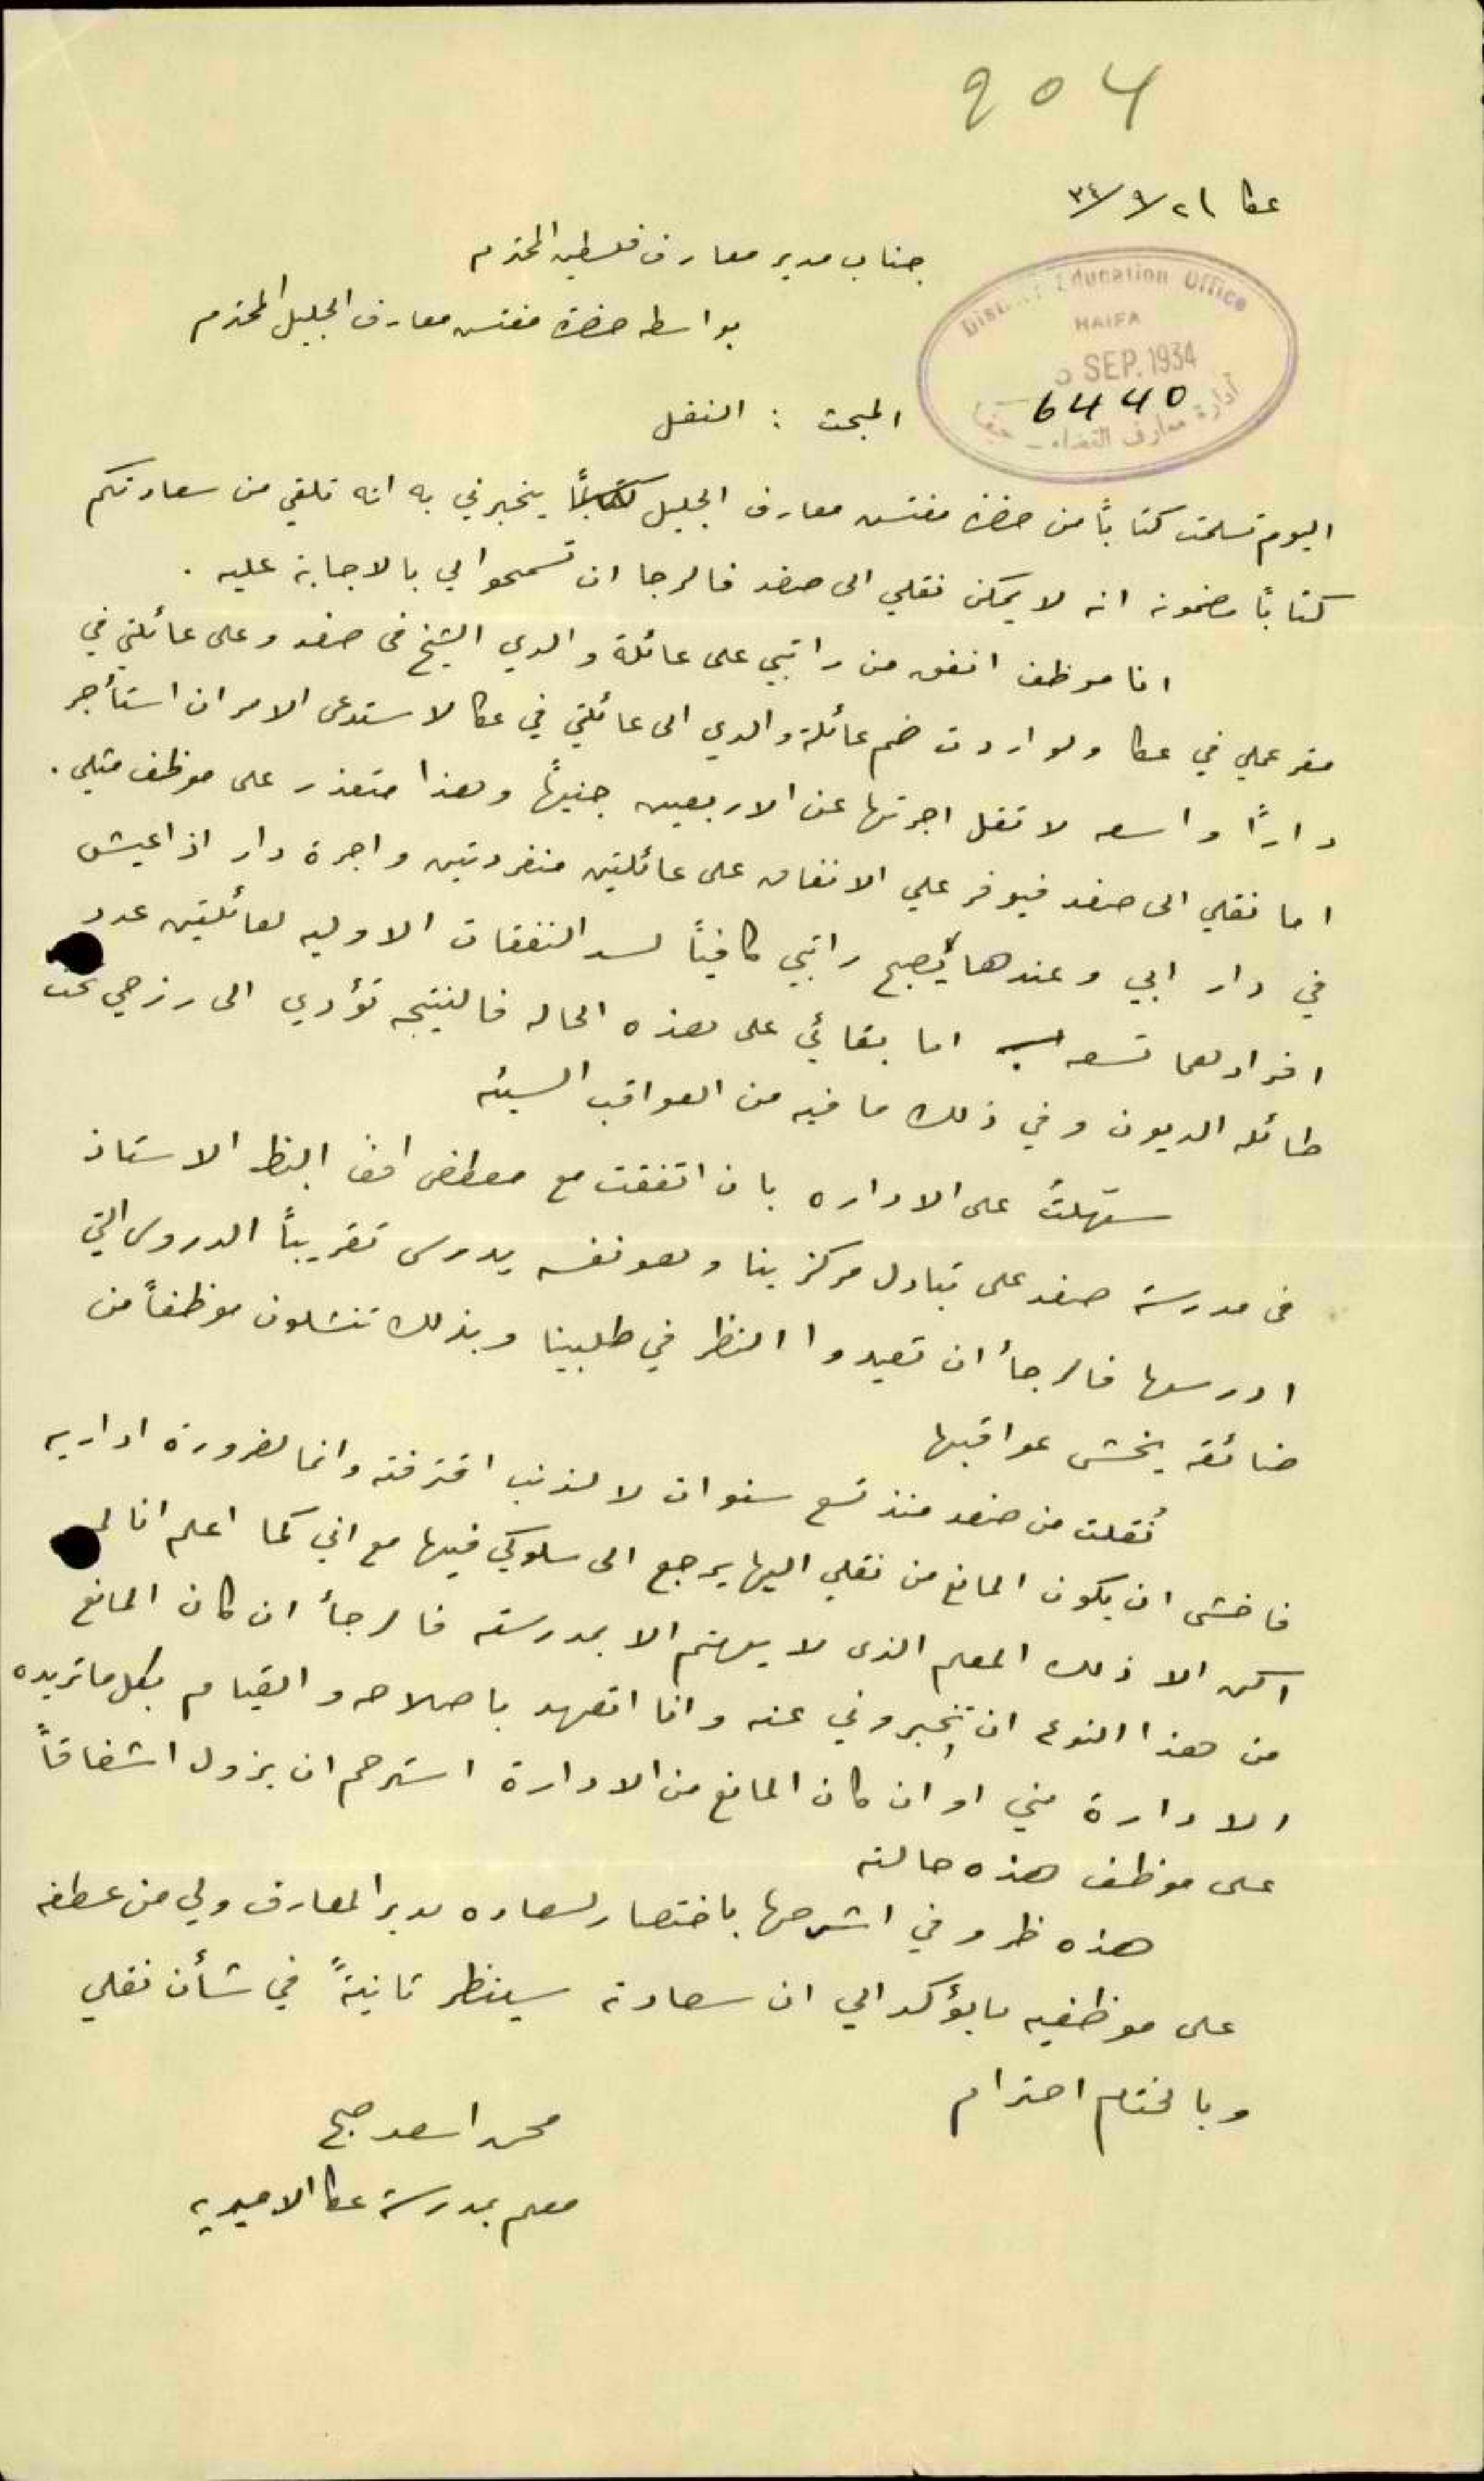 904
عكا ٢١/٩/٣٤
جناب مدير معارف فلسطين المحترم
بواسطه حضرة مفتش معارف الجليل المحترم
District Education Office
HAIFA
SEP. 1934
6440
ادارة معارف القضاء - حيفا
المبحث : النقل
اليوم تسلمت كتاباً من حضرة مفتش معارف الجليل يخبرني به انه تلقى من سعادتكم
كتاباً مضمونه انه لا يمكن نقلي الى صفد فالرجا ان تسمحوا لي بالاجابة عليه .
انا موظف انفق من راتبي على عائلة والدي الشيخ في صفد وعلى عائلتي في
مقر عملي في عكا ولو اردت ضم عائلة والدي الى عائلتي في عكا لاستدعى الامر ان استأجر
داراً واسعه لا تقل اجرتها عن الاربعين جنيهاً وهذا متعذر على موظف مثلي .
اما نقلي الى صفد فيوفر علي الانفاق على عائلتين منفردتين واجرة دار اذ اعيش
في دار ابي وعندها يُصبح راتبي كافياً لسد النفقات الاوليه لعائلتين عدد
افرادهما تسعه اما بقائي على هذه الحاله فالنتيجه تؤدي الى رزحي تحت
طائله الديون وفي ذلك ما فيه من العواقب السيئه
سهلتُ على الاداره بان اتفقت مع مصطفى افندي الاستاذ
في مدرسة صفد على تبادل مركزينا وهو نفسه يدرس تقريباً الدروس التي
ادرسها فالرجأ ان تعيدوا النظر في طلبينا وبذلك تنشلون موظفاً من
ضائقه يخشى عواقبها
نُقلت من صفد منذ تسع سنوات لا لذنب اقترفته وانما لضرورة اداريه
فاخشى ان يكون المانع من نقلي اليها يرجع الى سلوكي فيها مع اني كما اعلم انا لم
اكن الا ذلك المعلم الذي لا يهتم الا بمدرسته فالرجأ ان كان المانع
من هذا النوع ان تخبروني عنه وانا اتعهد باصلاحه والقيام بكل ما تريده
الادارة مني او ان كان المانع من الادارة استرحم ان يزول اشفاقاً
على موظف هذه حالته
هذه ظروفي اشرحها باختصار لسعاده مدير المعارف ولي من عطفه
على موظفيه ما يؤكد الي ان سعادته سينظر ثانيةً في شأن نقلي
وبالختام احترام
محمد اسعد صبح
معلم بمدرسة عكا الاميريه